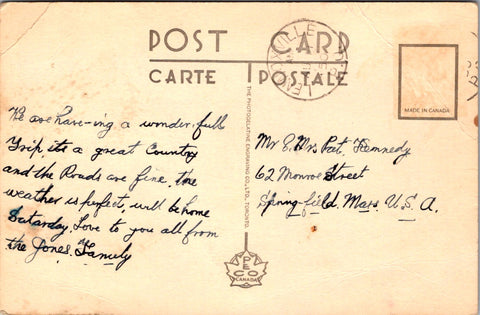 POST CARD
CARTE POSTALE
LENNOXVILLE
MADE IN CANADA
THE PHOTOGELATINE ENGRAVING CO., LTD., TORONTO.
We are have-ing a wonder-full
Trip, its a great Country
and the Roads are fine, the
weather is perfect, will be home
Saturday, Love to you all from
the Jones. Family
Mr & Mrs Pat. Kennedy
62 Monroe Street
Spring-field. Mass. U.S.A.
PECO
CANADA